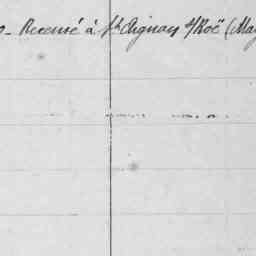 - Recensé à St Aignan s/Roë (May